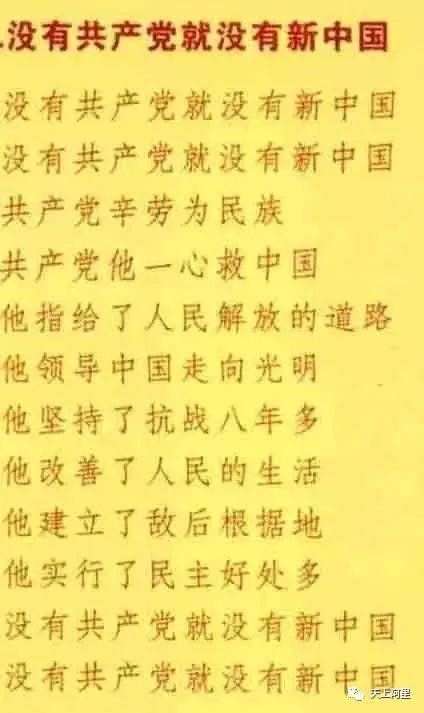 .没有共产党就没有新中国
没有共产党就没有新中国
没有共产党就没有新中国
共产党辛劳为民族
共产党他一心救中国
他指给了人民解放的道路
他领导中国走向光明
他坚持了抗战八年多
他改善了人民的生活
他建立了敌后根据地
他实行了民主好处多
没有共产党就没有新中国
没有共产党就没有新中国
天上阿里